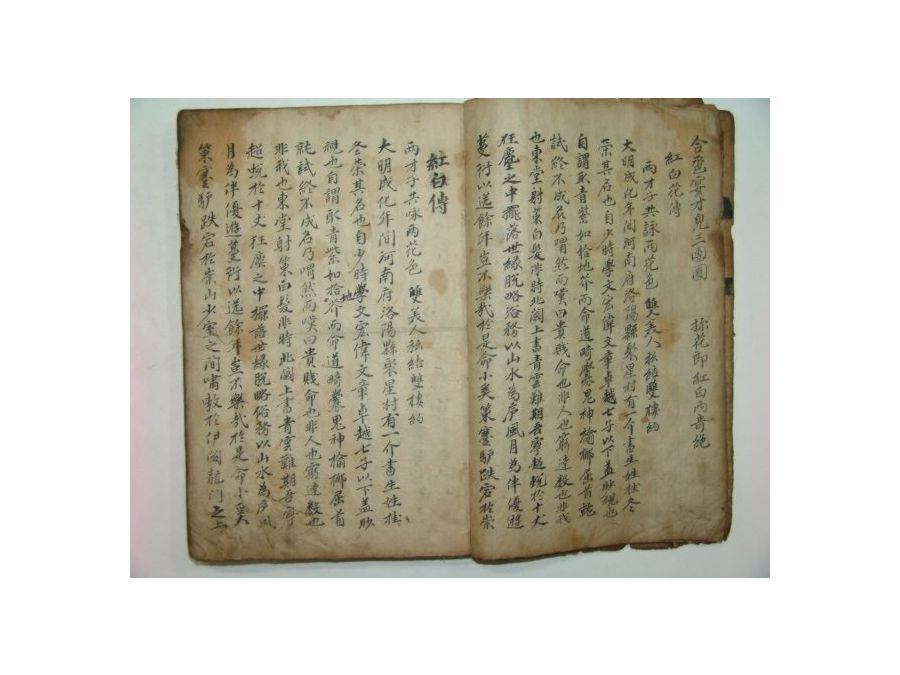 合巹宴才兒三團圓　探花郎紅白兩奇絶
紅白花傳
兩才子共詠兩花色　雙美人私結雙樓約
大明成化年間河南府洛陽縣聚星村有一介書生姓桂冬
榮其名也自少時學文宏偉文章卓越七子以下盖眇視也
自謂取青紫如拾地芥而命道畸釁鬼神揄揶屈首就
試終不成名乃喟然而嘆曰貴賤命也非人也窮達數也非我
也東堂射策白髮非時北闕上書青雲難期吾寧超蛻於十丈
狂塵之中擺落世緣脫略俗務以山水為庐風月為伴優遊
蔓衍以送餘年豈不樂哉於是命小奚策蹇驢跌宕於崇
紅白傳
兩才子共咏兩花色　雙美人私結雙樓約
大明成化年間河南府洛陽縣聚星村有一介書生姓桂
冬榮其名也自少時學文宏偉文章卓越七子以下盖眇
視也自謂取青紫如拾地芥而命道畸釁鬼神揄揶屈首
就試終不成名乃喟然而嘆曰貴賤命也非人也窮達數也
非我也東堂射策白髮非時北闕上書青雲難期吾寧
超蛻於十丈狂塵之中擺落世緣脫略俗務以山水為庐風
月為伴優遊蔓衍以送餘年豈不樂哉於是命小奚
策蹇驢跌宕於崇山少室之間嘯敖於伊闕龍門之上